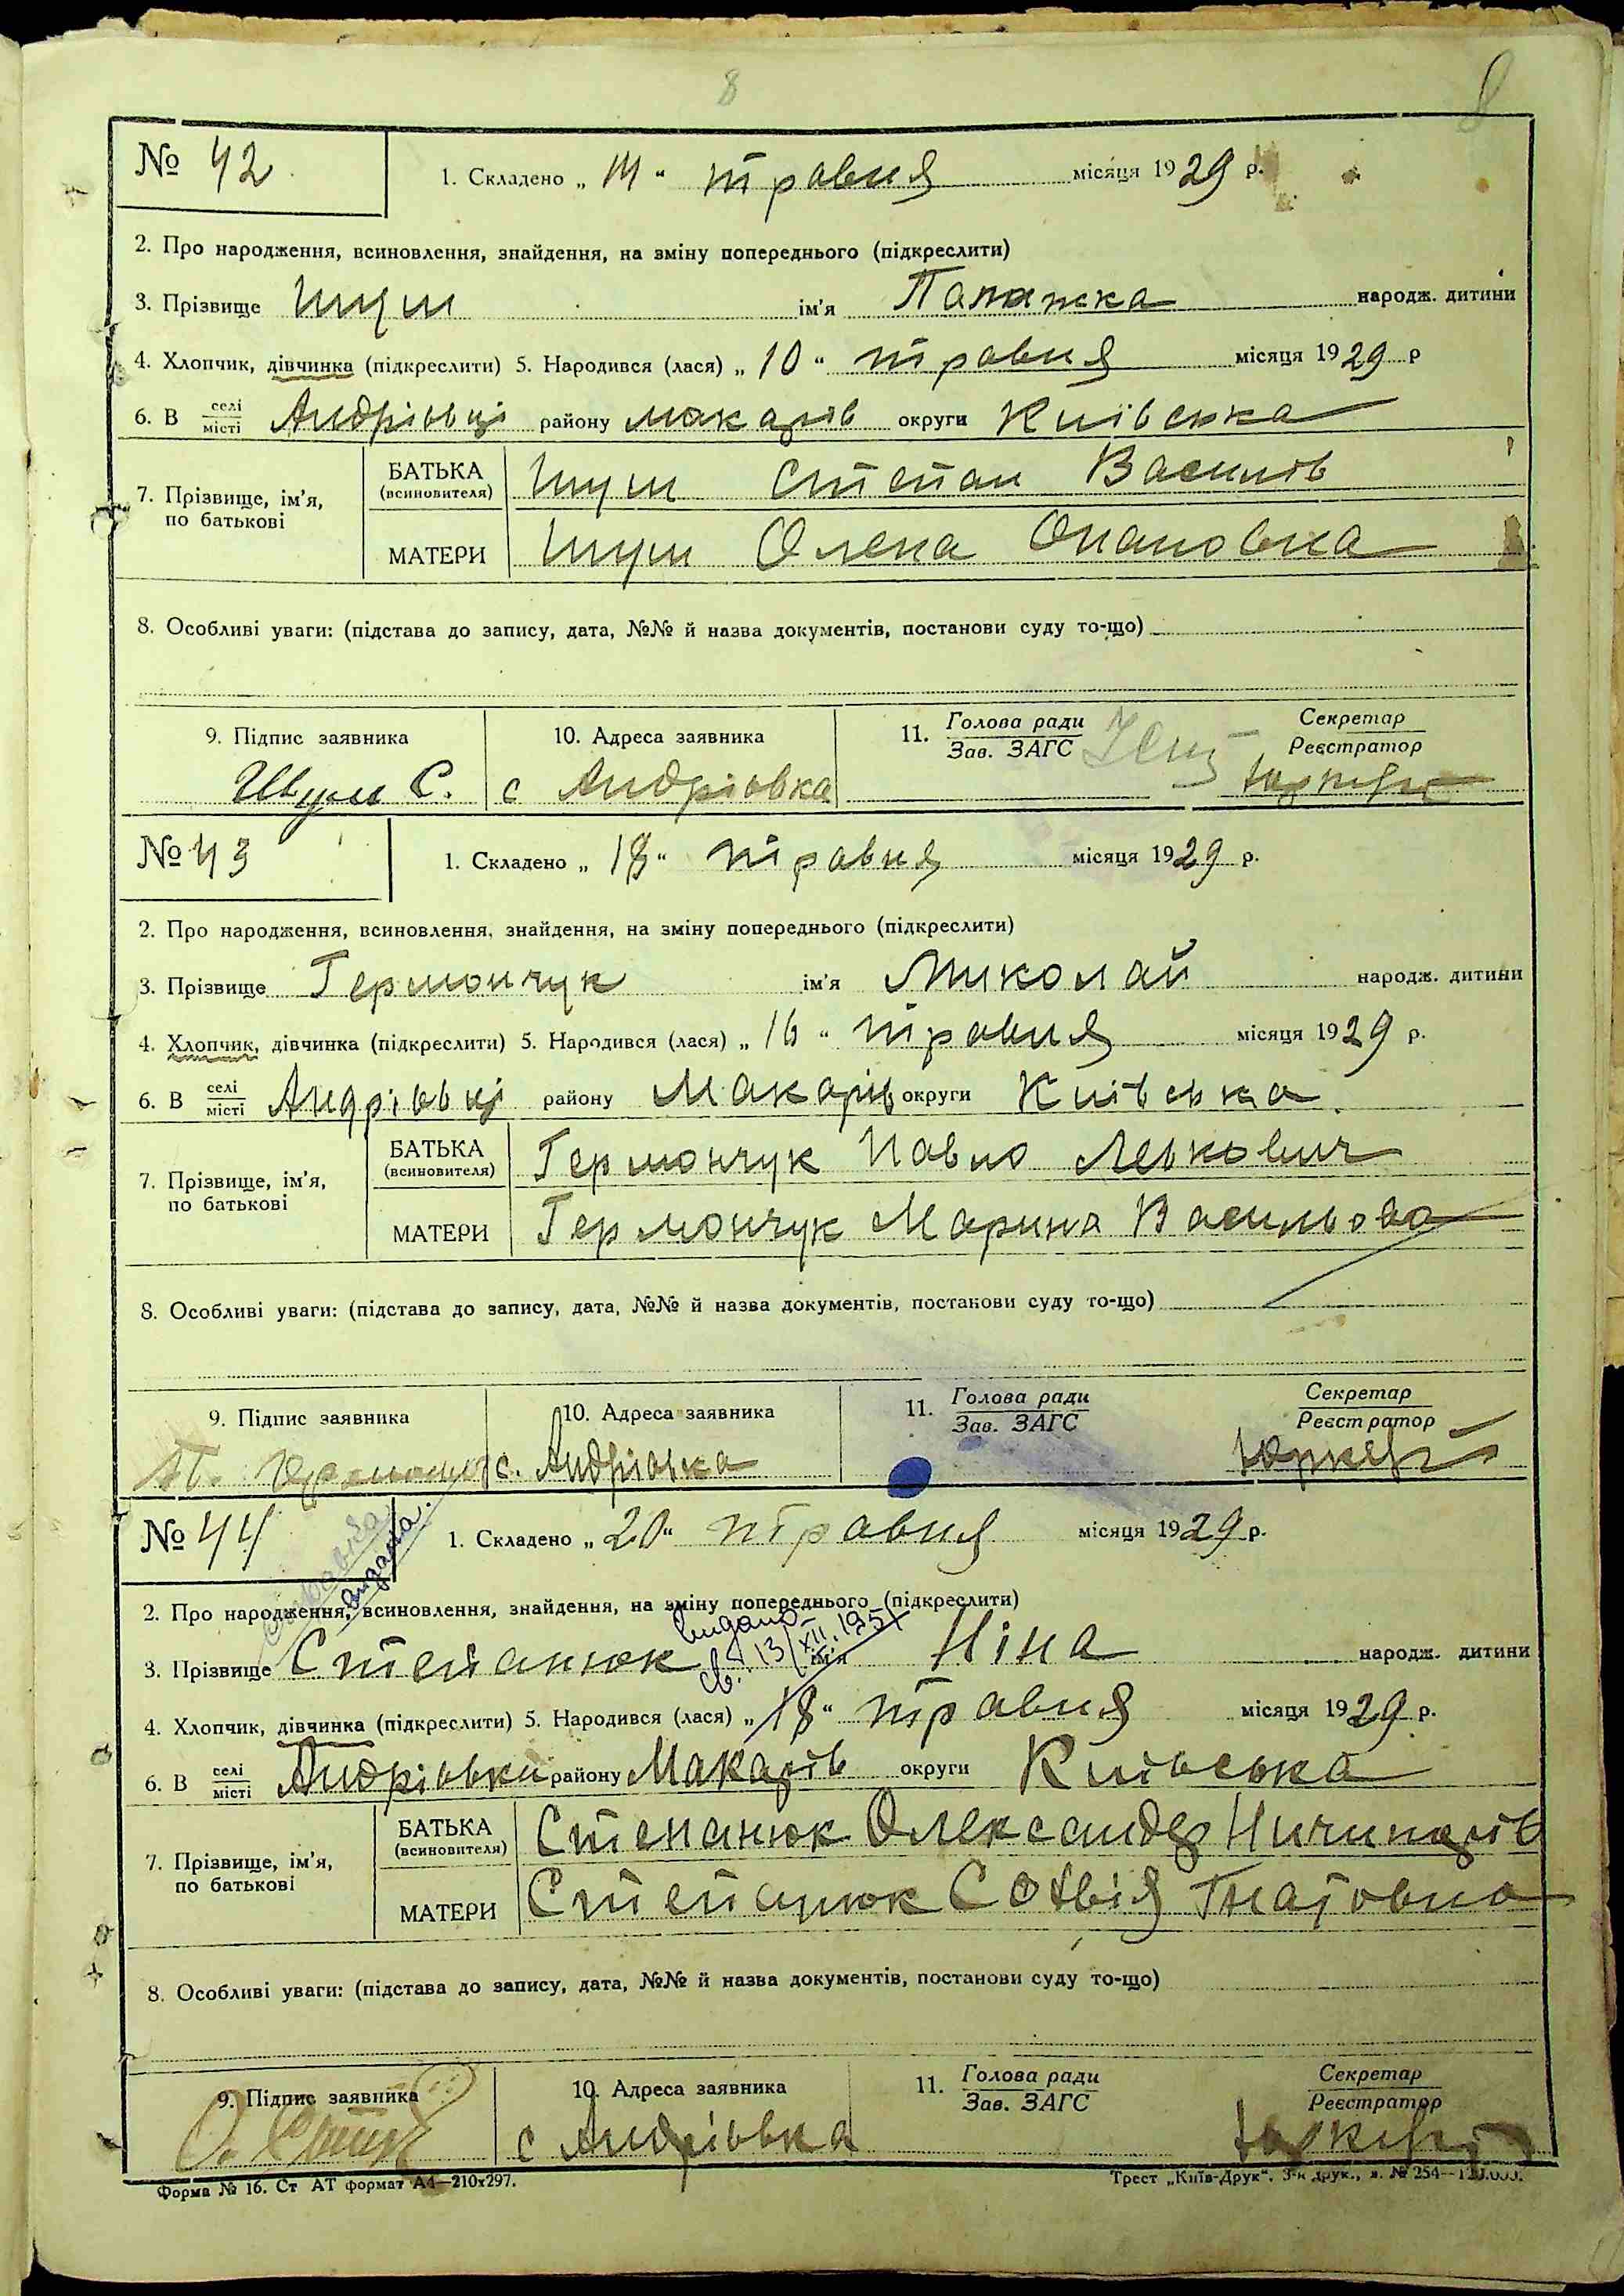 8
8
№ 42
1. Складено „14“ травня місяця 1929 р.
2. Про народження, всиновлення, знайдення, на зміну попереднього (підкреслити)
3. Прізвище Шуш ім'я Палажка народж. дитини
4. Хлопчик, дівчинка (підкреслити) 5. Народився (лася) „10“ травня місяця 1929 р
6. В селі місті Андріївці району Макарів округи Київська
7. Прізвище, ім'я, по батькові
БАТЬКА (всиновителя) Шуш Степан Василів
МАТЕРИ Шуш Олена Опановна
8. Особливі уваги: (підстава до запису, дата, №№ й назва документів, постанови суду то-що)
9. Підпис заявника 10. Адреса заявника 11. Голова ради Зав. ЗАГС Секретар Реєстратор
С. с Андрiовка
№ 43
1. Складено „18“ травня місяця 1929 р.
2. Про народження, всиновлення, знайдення, на зміну попереднього (підкреслити)
3. Прізвище Гермончук ім'я Миколай народж. дитини
4. Хлопчик, дівчинка (підкреслити) 5. Народився (лася) „16“ травня місяця 1929 р.
6. В селі місті Андріовці району Макарів округи Київська
7. Прізвище, ім'я, по батькові
БАТЬКА (всиновителя) Гермончук Павло Левкович
МАТЕРИ Гермончук Марина Васильова
8. Особливі уваги: (підстава до запису, дата, №№ й назва документів, постанови суду то-що)
9. Підпис заявника 10. Адреса заявника 11. Голова ради Зав. ЗАГС Секретар Реєстратор
с. Андріовка
№ 44
1. Складено „20“ травня місяця 1929 р.
2. Про народження, всиновлення, знайдення, на зміну попереднього (підкреслити)
видано
св. 13/XII.1951
3. Прізвище Степанюк ім'я Ніна народж. дитини
4. Хлопчик, дівчинка (підкреслити) 5. Народився (лася) „18“ травня місяця 1929 р.
6. В селі місті Андріовки району Макарів округи Київська
7. Прізвище, ім'я, по батькові
БАТЬКА (всиновителя) Степанюк Олександер Ничипорів
МАТЕРИ Степанюк Софвія Гнатовна
8. Особливі уваги: (підстава до запису, дата, №№ й назва документів, постанови суду то-що)
9. Підпис заявника 10. Адреса заявника 11. Голова ради Зав. ЗАГС Секретар Реєстратор
с Андріовка
Форма № 16. Ст АТ формат А4—210х297.
Трест „Київ-Друк“. 3-я друк., з. № 254